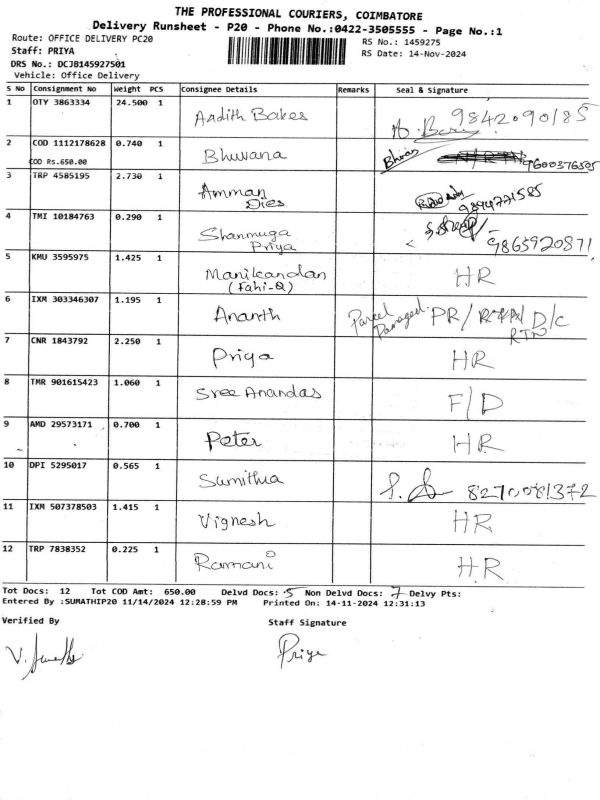 THE PROFESSIONAL COURIERS, COIMBATORE
Delivery Runsheet - P20 - Phone No.:0422-3505555 - Page No.:1
Route: OFFICE DELIVERY PC20 RS No.: 1459275
Staff: PRIYA RS Date: 14-Nov-2024
DRS No.: DCJB145927501
Vehicle: Office Delivery
S No Consignment No Weight PCS Consignee Details Remarks Seal & Signature
1 OTY 3863334 24.500 1 Aadith Bakes 9842090185
2 COD 1112178628 0.740 1 Bhuvana 9600376505
COD Rs.650.00
3 TRP 4585195 2.730 1 Amman Dies 9894771585
4 TMI 10184763 0.290 1 Shanmuga Priya 9865920871
5 KMU 3595975 1.425 1 Manikandan (Fahi-Q) HR
6 IXM 303346307 1.195 1 Ananth Parcel Damaged PR/ D/C RTO
7 CNR 1843792 2.250 1 Priya HR
8 TMR 901615423 1.060 1 Sree Anandas F/D
9 AMD 29573171 0.700 1 Peter HR
10 DPI 5295017 0.565 1 Sumithua 8270081372
11 IXM 507378503 1.415 1 Vignesh HR
12 TRP 7838352 0.225 1 Ramani HR
Tot Docs: 12 Tot COD Amt: 650.00 Delvd Docs: 5 Non Delvd Docs: 7 Delvy Pts:
Entered By :SUMATHIP20 11/14/2024 12:28:59 PM Printed On: 14-11-2024 12:31:13
Verified By Staff Signature
Priya